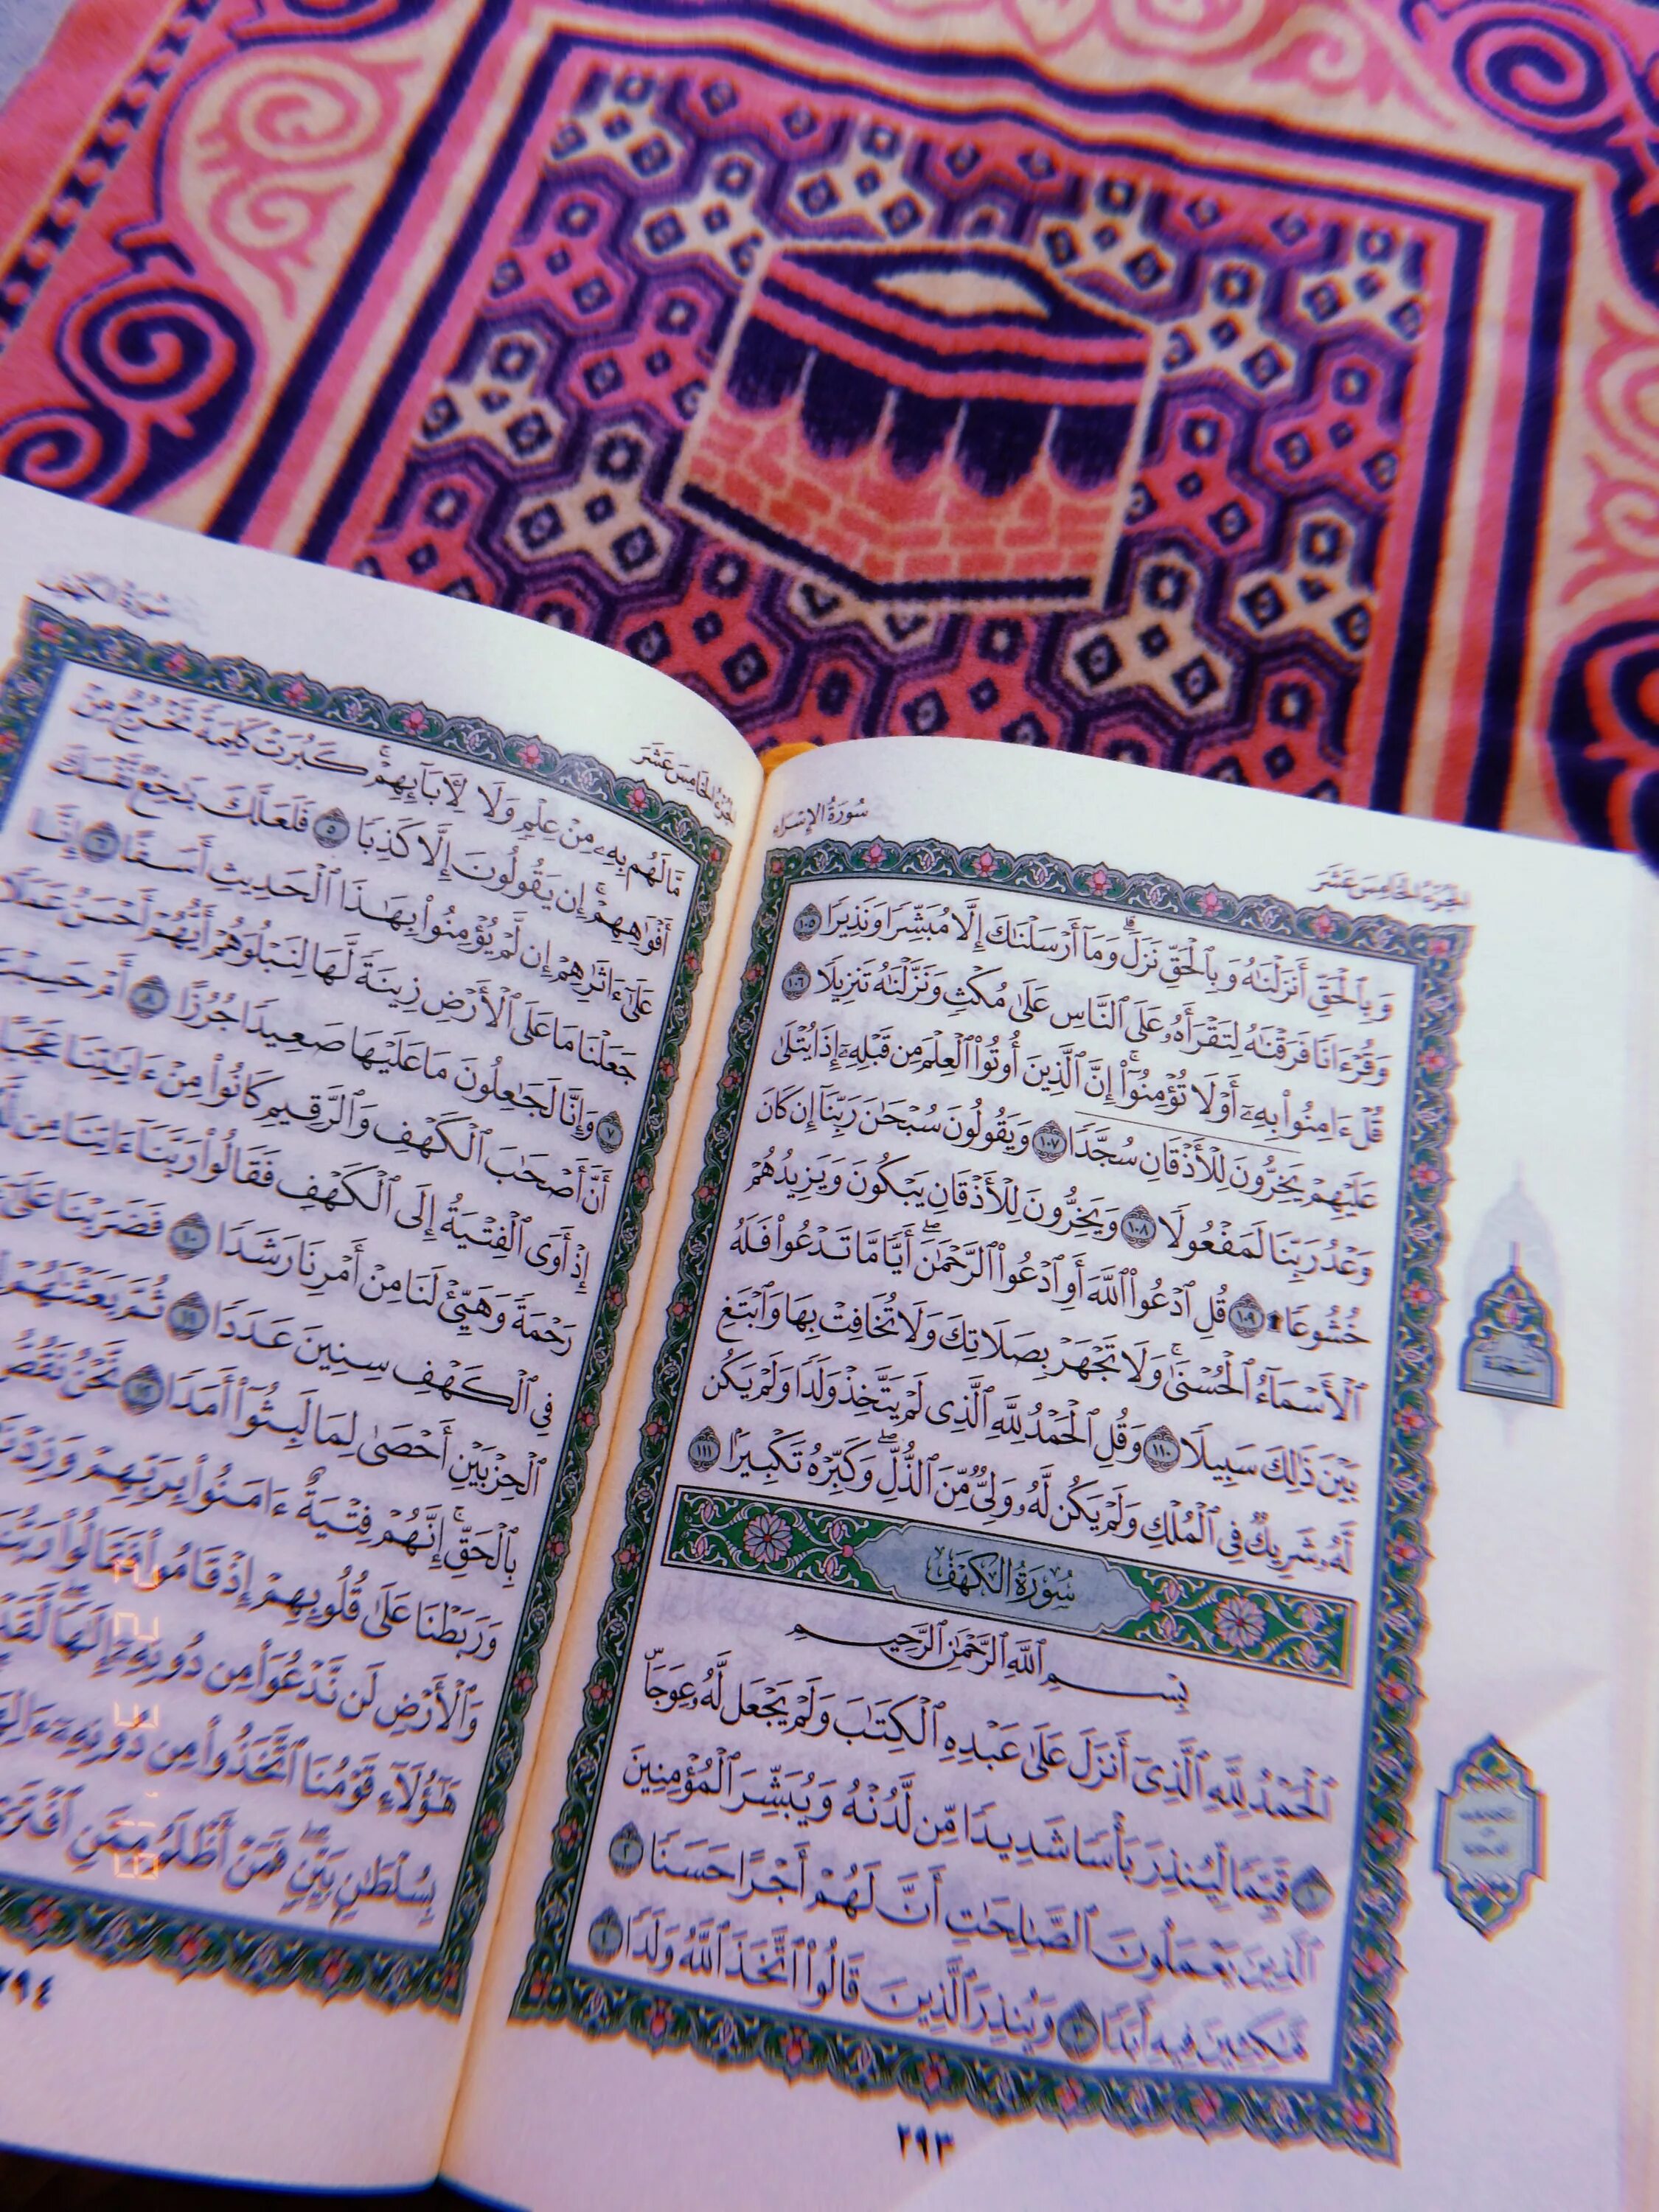 الجُزْءُ الخَامِسَ عَشَرَ
سُورَةُ الإِسْرَاءِ
وَبِٱلْحَقِّ أَنزَلْنَٰهُ وَبِٱلْحَقِّ نَزَلَ ۗ وَمَآ أَرْسَلْنَٰكَ إِلَّا مُبَشِّرًا وَنَذِيرًا ١٠٥
وَقُرْءَانًا فَرَقْنَٰهُ لِتَقْرَأَهُۥ عَلَى ٱلنَّاسِ عَلَىٰ مُكْثٍ وَنَزَّلْنَٰهُ تَنزِيلًا ١٠٦
قُلْ ءَامِنُوا۟ بِهِۦٓ أَوْ لَا تُؤْمِنُوٓا۟ ۚ إِنَّ ٱلَّذِينَ أُوتُوا۟ ٱلْعِلْمَ مِن قَبْلِهِۦٓ إِذَا يُتْلَىٰ
عَلَيْهِمْ يَخِرُّونَ لِلْأَذْقَانِ سُجَّدًا ١٠٧ وَيَقُولُونَ سُبْحَٰنَ رَبِّنَآ إِن كَانَ
وَعْدُ رَبِّنَا لَمَفْعُولًا ١٠٨ وَيَخِرُّونَ لِلْأَذْقَانِ يَبْكُونَ وَيَزِيدُهُمْ
خُشُوعًا ۩ ١٠٩ قُلِ ٱدْعُوا۟ ٱللَّهَ أَوِ ٱدْعُوا۟ ٱلرَّحْمَٰنَ ۖ أَيًّا مَّا تَدْعُوا۟ فَلَهُ
ٱلْأَسْمَآءُ ٱلْحُسْنَىٰ ۚ وَلَا تَجْهَرْ بِصَلَاتِكَ وَلَا تُخَافِتْ بِهَا وَٱبْتَغِ
بَيْنَ ذَٰلِكَ سَبِيلًا ١١٠ وَقُلِ ٱلْحَمْدُ لِلَّهِ ٱلَّذِى لَمْ يَتَّخِذْ وَلَدًا وَلَمْ يَكُن
لَّهُۥ شَرِيكٌ فِى ٱلْمُلْكِ وَلَمْ يَكُن لَّهُۥ وَلِىٌّ مِّنَ ٱلذُّلِّ ۖ وَكَبِّرْهُ تَكْبِيرًۢا ١١١
سُورَةُ الكَهْفِ
بِسْمِ ٱللَّهِ ٱلرَّحْمَٰنِ ٱلرَّحِيمِ
ٱلْحَمْدُ لِلَّهِ ٱلَّذِىٓ أَنزَلَ عَلَىٰ عَبْدِهِ ٱلْكِتَٰبَ وَلَمْ يَجْعَل لَّهُۥ عِوَجَا ۜ
١ قَيِّمًا لِّيُنذِرَ بَأْسًا شَدِيدًا مِّن لَّدُنْهُ وَيُبَشِّرَ ٱلْمُؤْمِنِينَ
ٱلَّذِينَ يَعْمَلُونَ ٱلصَّٰلِحَٰتِ أَنَّ لَهُمْ أَجْرًا حَسَنًا ٢
مَّٰكِثِينَ فِيهِ أَبَدًا ٣ وَيُنذِرَ ٱلَّذِينَ قَالُوا۟ ٱتَّخَذَ ٱللَّهُ وَلَدًا ٤
٢٩٣
الجُزْءُ الخَامِسَ عَشَرَ
سُورَةُ الكَهْفِ
مَّا لَهُم بِهِۦ مِنْ عِلْمٍ وَلَا لِءَابَآئِهِمْ ۚ كَبُرَتْ كَلِمَةً تَخْرُجُ مِنْ
أَفْوَٰهِهِمْ ۚ إِن يَقُولُونَ إِلَّا كَذِبًا ٥ فَلَعَلَّكَ بَٰخِعٌ نَّفْسَكَ
عَلَىٰٓ ءَاثَٰرِهِمْ إِن لَّمْ يُؤْمِنُوا۟ بِهَٰذَا ٱلْحَدِيثِ أَسَفًا ٦ إِنَّا
جَعَلْنَا مَا عَلَى ٱلْأَرْضِ زِينَةً لَّهَا لِنَبْلُوَهُمْ أَيُّهُمْ أَحْسَنُ عَمَلًا
٧ وَإِنَّا لَجَٰعِلُونَ مَا عَلَيْهَا صَعِيدًا جُرُزًا ٨ أَمْ حَسِبْتَ
أَنَّ أَصْحَٰبَ ٱلْكَهْفِ وَٱلرَّقِيمِ كَانُوا۟ مِنْ ءَايَٰتِنَا عَجَبًا
إِذْ أَوَى ٱلْفِتْيَةُ إِلَى ٱلْكَهْفِ فَقَالُوا۟ رَبَّنَآ ءَاتِنَا مِن
رَحْمَةً وَهَيِّئْ لَنَا مِنْ أَمْرِنَا رَشَدًا ١٠ فَضَرَبْنَا عَلَىٰٓ
فِى ٱلْكَهْفِ سِنِينَ عَدَدًا ١١ ثُمَّ بَعَثْنَٰهُمْ
ٱلْحِزْبَيْنِ أَحْصَىٰ لِمَا لَبِثُوٓا۟ أَمَدًا ١٢ نَّحْنُ نَقُصُّ
بِٱلْحَقِّ ۚ إِنَّهُمْ فِتْيَةٌ ءَامَنُوا۟ بِرَبِّهِمْ
وَرَبَطْنَا عَلَىٰ قُلُوبِهِمْ إِذْ قَامُوا۟ فَقَالُوا۟
وَٱلْأَرْضِ لَن نَّدْعُوَا۟ مِن دُونِهِۦٓ إِلَٰهًا ۖ
هَٰٓؤُلَآءِ قَوْمُنَا ٱتَّخَذُوا۟ مِن دُونِهِۦٓ
بِسُلْطَٰنٍۭ بَيِّنٍ ۖ فَمَنْ أَظْلَمُ مِمَّنِ
٢٩٤